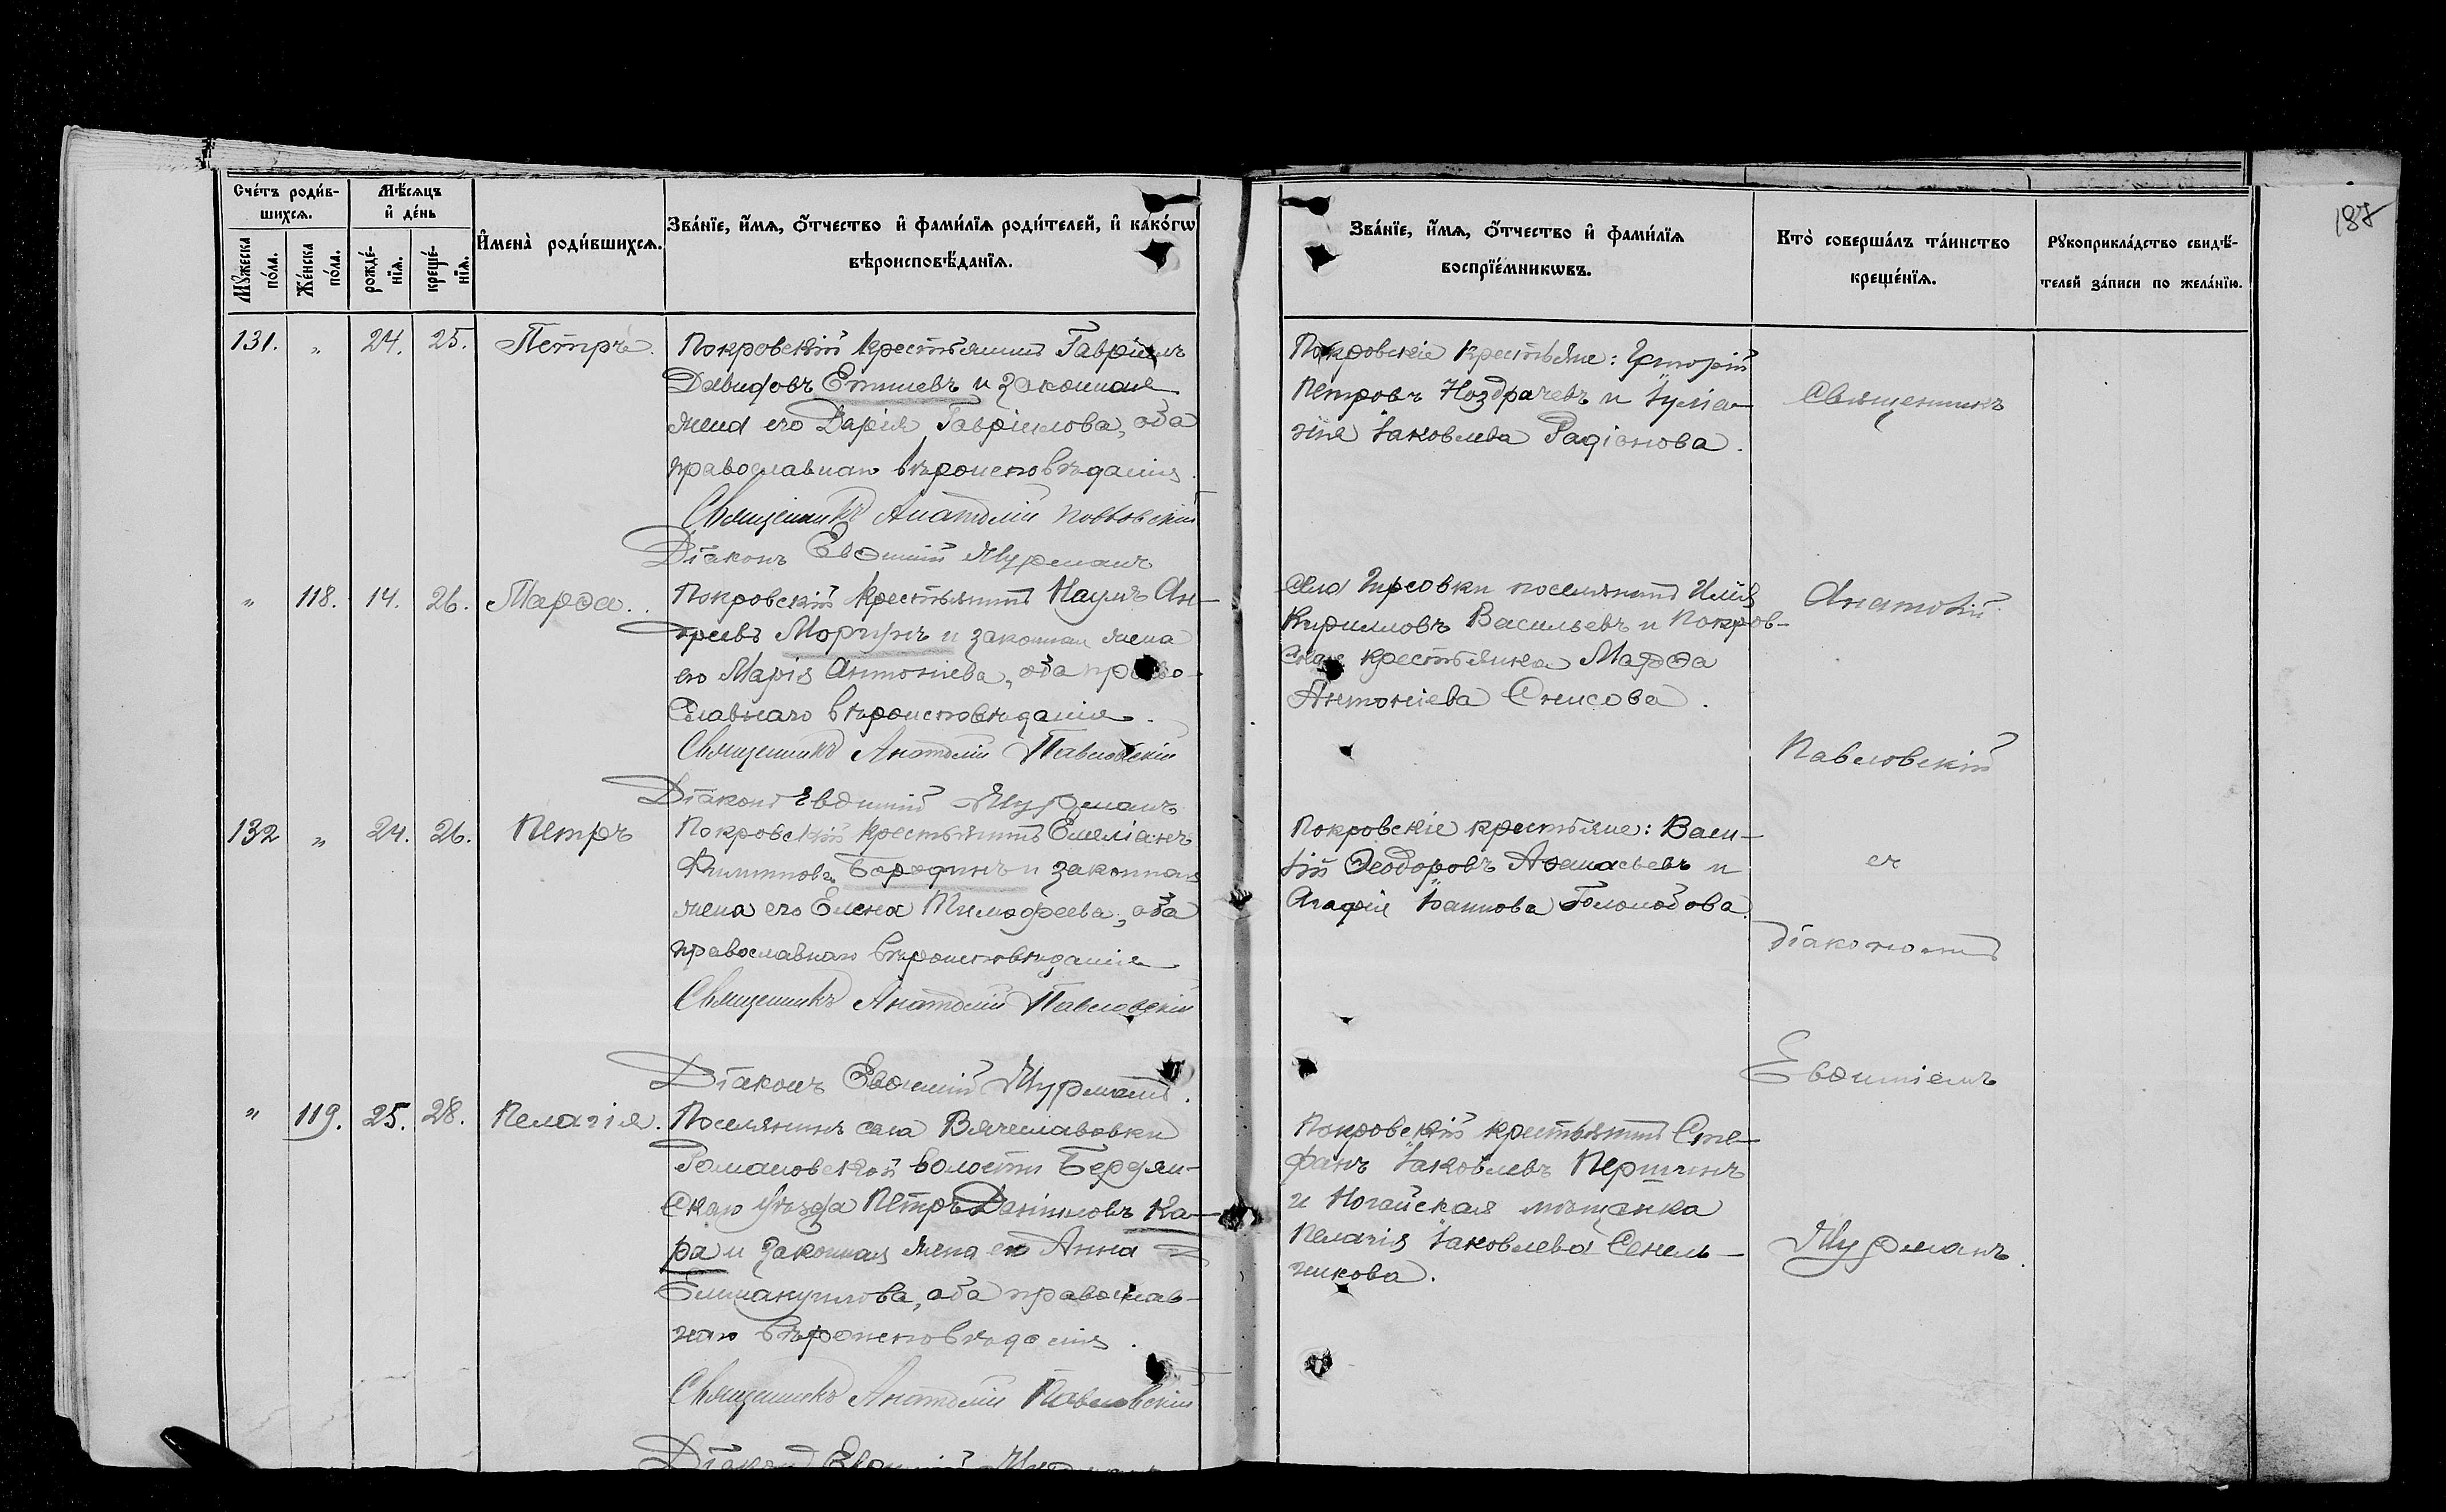 187
Счетъ родив-
шихся.
Мѣсяцъ
и день
Мужеска
пола.
Женска
пола.
рожде-
нія.
креще-
нія.
Имена родившихся.
Званіе, имя, отчество и фамилія родителей, и какогѡ
вѣроисповѣданія.
Званіе, имя, отчество и фамилія
воспріемникѡвъ.
Кто совершалъ таинство
крещенія.
Рукоприкладство свидѣ-
телей записи по желанію.
131. „ 24. 25. Петръ.
Покровскій крестьянинъ Гавріилъ
Давидовъ и законная
жена его Дарія Гавріилова, оба
православнаго вѣроисповѣданія.
Священникъ Анатолій Павловскій
Діаконъ Евѳимій Мурманъ
Покровскіе крестьяне:
Петровъ Ноздрачевъ и Іуліа-
нія Іаковлева Радіонова.
Священникъ
„ 118. 14. 26. Марѳа.
Покровскій крестьянинъ Наумъ Ан-
дреевъ Моргунъ и законная жена
его Марія Антоніева, оба право-
славнаго вѣроисповѣданія.
Священникъ Анатолій Павловскій
Діаконъ Евѳимій Мурманъ
села поселянинъ Илія
Кирилловъ Васильевъ и Покров-
ская крестьянка Марѳа
Антоніева Снисова.
Анатолій
Павловскій
132 „ 24. 26. Петръ
Покровскій крестьянинъ Емеліанъ
Филипповъ Бородинъ и законная
жена его Елена Тимоѳеева, оба
православнаго вѣроисповѣданія
Священникъ Анатолій Павловскій
Діаконъ Евѳимій Мурманъ.
Покровскіе крестьяне: Васи-
лій Ѳеодоровъ Аѳанасьевъ и
Агафія Іоаннова Гололобова.
съ
діакономъ
Евѳиміемъ
„ 119. 25. 28. Пелагія.
Поселянинъ села Вячеславовки
Романовской волости Бердян-
скаго уѣзда Петръ Даніиловъ Ка-
ра и законная жена его Анна
Еммануилова, оба православ-
наго вѣроисповѣданія.
Священникъ Анатолій Павловскій
Діаконъ Евѳимій Мурманъ
Покровскій крестьянинъ Сте-
фанъ Іаковлевъ Першинъ
и Ногайская мѣщанка
Пелагія Іаковлева Сенель-
никова.
Мурманъ.